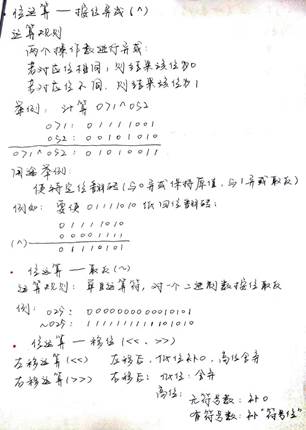 位运算——按位异或(^)
运算规则
两个操作数进行异或:
若对应位相同,则结果该位为0
若对应位不同,则结果该位为1
举例:计算071^052
071: 01111001
052: 00101010
071^052: 01010011
用途举例:
使特定位翻转(与0异或保持原值,与1异或取反)
例如:要使01111010低四位翻转:
01111010
(^) 00001111
01110101
• 位运算——取反(~)
运算规则:单目运算符,对一个二进制数按位取反
例:025: 0000000000010101
~025: 1111111111101010
• 位运算——移位(<<、>>)
左移运算(<<) 左移后,低位补0,高位舍弃
右移运算(>>) 右移后:低位:舍弃
高位:
无符号数:补0
有符号数:补"符号位"